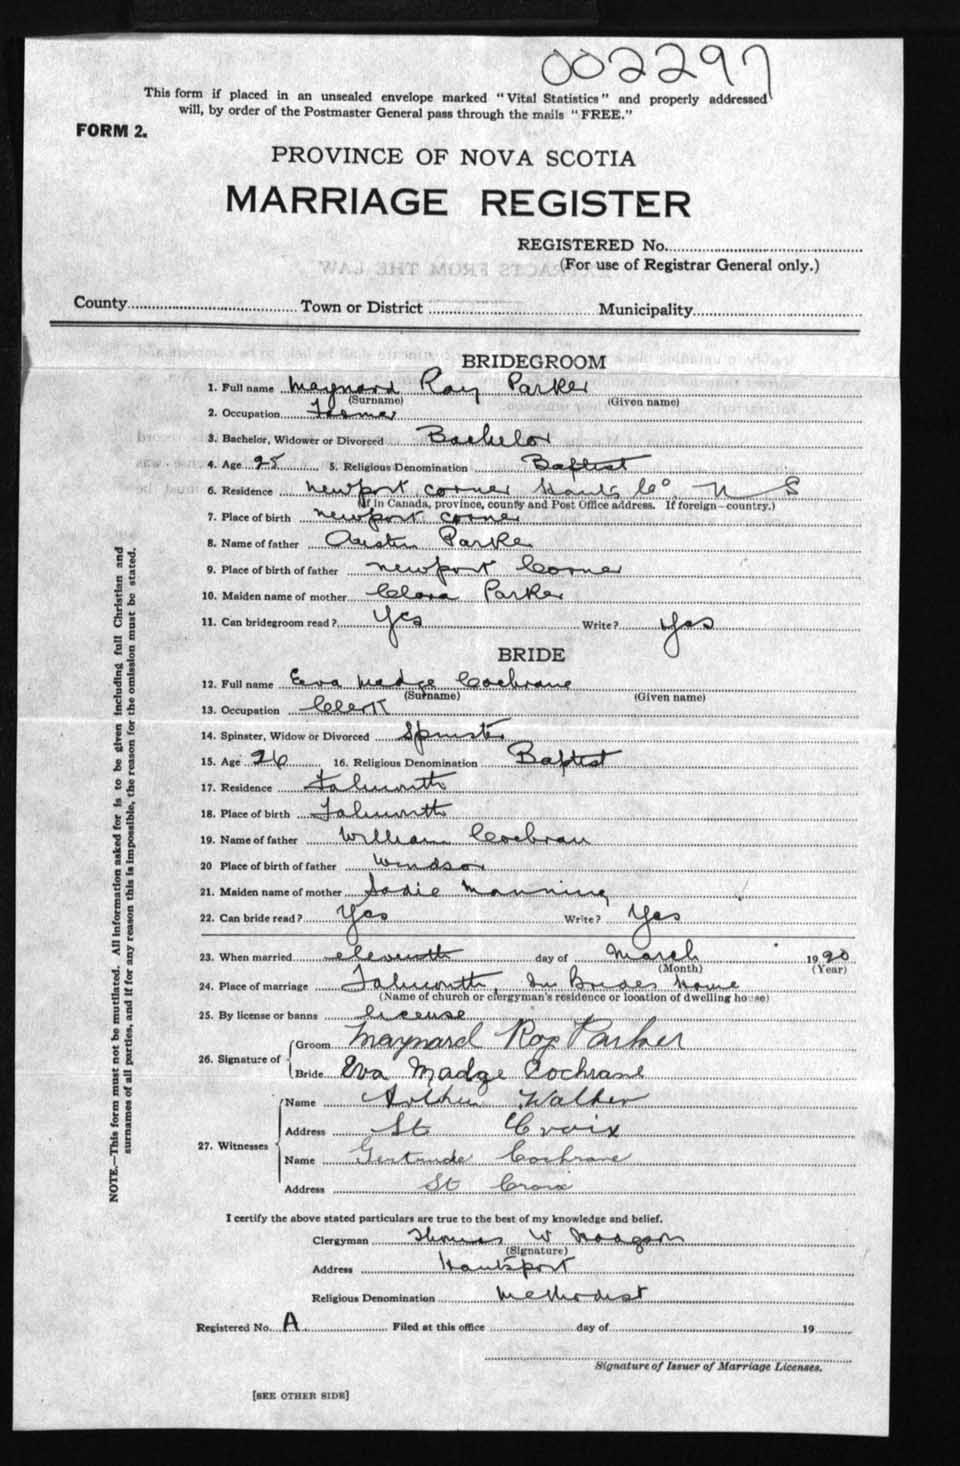 002297
This form if placed in an unsealed envelope marked "Vital Statistics" and properly addressed
will, by order of the Postmaster General pass through the mails "FREE."
FORM 2.
PROVINCE OF NOVA SCOTIA
MARRIAGE REGISTER
REGISTERED No.
(For use of Registrar General only.)
County Town or District Municipality
BRIDEGROOM
1. Full name Maynard Roy Parker
(Surname) (Given name)
2. Occupation
3. Bachelor, Widower or Divorced Bachelor
4. Age 25 5. Religious Denomination Baptist
6. Residence Newport Corner Hants Co. N S
(If in Canada, province, county and Post Office address. If foreign—country.)
7. Place of birth Newport Corner
8. Name of father Austin Parker
9. Place of birth of father Newport Corner
10. Maiden name of mother Clara Parker
11. Can bridegroom read? Yes Write? Yes
BRIDE
12. Full name Eva Madge Cochrane
(Surname) (Given name)
13. Occupation Clerk
14. Spinster, Widow or Divorced Spinster
15. Age 26 16. Religious Denomination Baptist
17. Residence Falmouth
18. Place of birth Falmouth
19. Name of father William Cochran
20 Place of birth of father Windsor
21. Maiden name of mother Sadie Manning
22. Can bride read? Yes Write? Yes
23. When married eleventh day of March 1920
(Month) (Year)
24. Place of marriage Falmouth, In Brides home
(Name of church or clergyman's residence or location of dwelling house)
25. By license or banns license
26. Signature of Groom Maynard Roy Parker
Bride Eva Madge Cochrane
27. Witnesses Name Arthur Walker
Address St Croix
Name Gertrude Cochrane
Address St Croix
I certify the above stated particulars are true to the best of my knowledge and belief.
Clergyman Thomas W Hodgson
(Signature)
Address Hantsport
Religious Denomination Methodist
Registered No. A Filed at this office day of 19
Signature of Issuer of Marriage Licenses.
[SEE OTHER SIDE]
NOTE.—This form must not be mutilated. All information asked for is to be given including full Christian and
surnames of all parties, and if for any reason this is impossible, the reason for the omission must be stated.